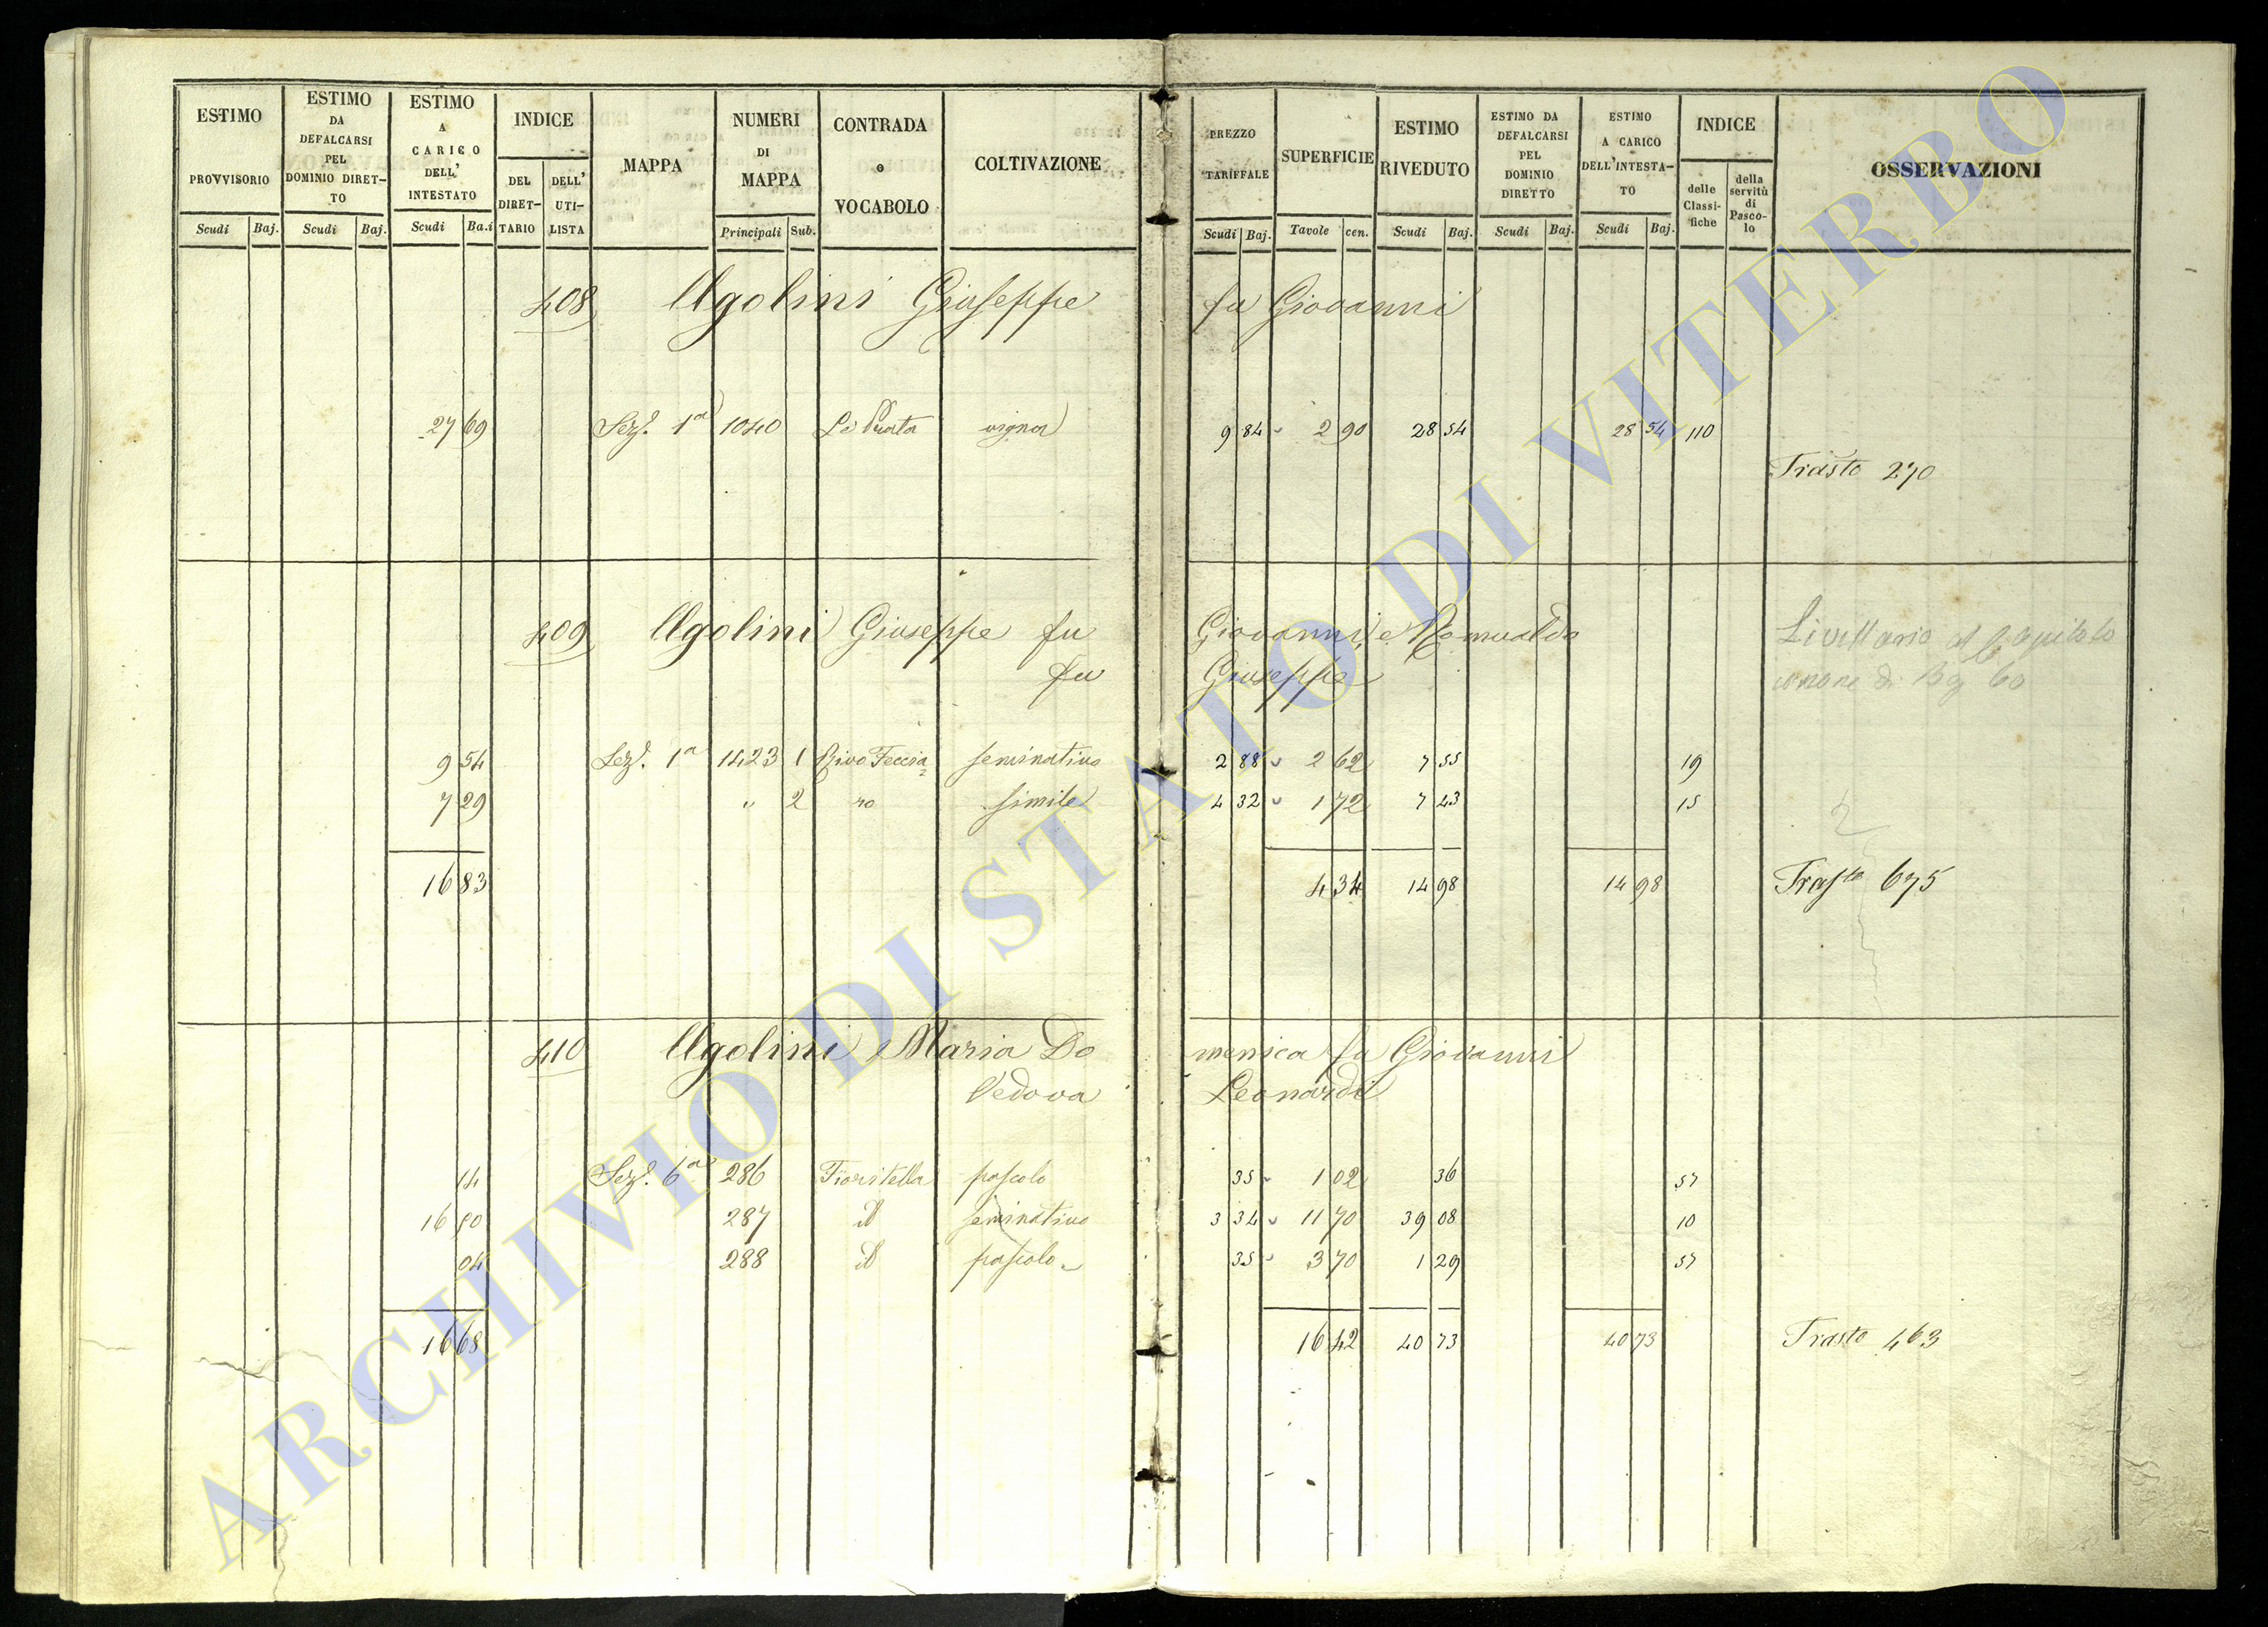 ESTIMO PROVVISORIO Scudi Baj.
ESTIMO DA DEFALCARSI PEL DOMINIO DIRET-TO Scudi Baj.
ESTIMO A CARICO DELL' INTESTATO Scudi Ba.i
INDICE DEL DIRET-TARIO DELL' UTI-LISTA
MAPPA
NUMERI DI MAPPA Principali Sub.
CONTRADA o VOCABOLO
COLTIVAZIONE
PREZZO TARIFFALE Scudi Baj.
SUPERFICIE Tavole cen.
ESTIMO RIVEDUTO Scudi Baj.
ESTIMO DA DEFALCARSI PEL DOMINIO DIRETTO Scudi Baj.
ESTIMO A CARICO DELL'INTESTA-TO Scudi Baj.
INDICE delle Classi-fiche della servitù di Pasco-lo
OSSERVAZIONI
408 Ugolini Giuseppe fu Giovanni
27 69 Sez. 1a 1040 vigna 9 84 2 90 28 54 28 54 110
Trasto 270
409 Ugolini Giuseppe fu Giovanni, e Romualdo
fu Giuseppe
Livellario al Capitolo
di Baj 60
9 54 Sez. 1a 1423 1 Rivo Feccia seminativo 2 88 2 62 7 55 19
7 29 " 2 simile 4 32 1 72 7 43 15
16 83 4 34 14 98 14 98 Trasto 675
410 Ugolini Maria Domenica fu Giovanni
Vedova Leonardi
14 Sez. 6a 286 Fioritella pascolo 35 1 02 36 57
16 50 287 id seminativo 3 34 11 70 39 08 10
04 288 id pascolo 35 3 70 1 29 57
16 68 16 42 40 73 40 73 Trasto 463
ARCHIVIO DI STATO DI VITERBO